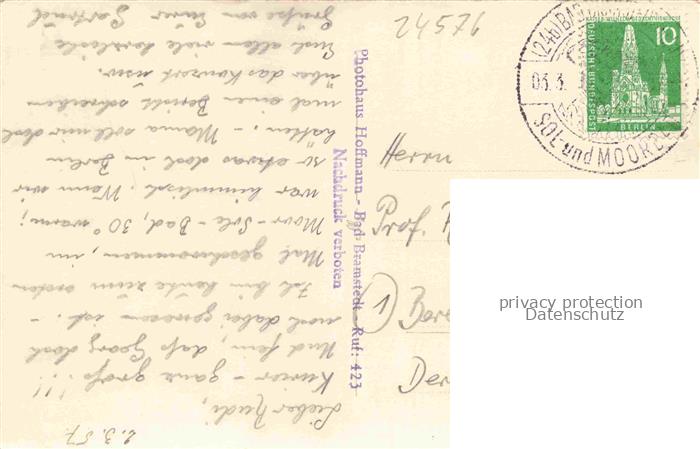 24576
(24b) BAD
03.3.
SOL und MOORB
10
DEUTSCHE BUNDESPOST
BERLIN
Herrn
Prof.
1)
Der
privacy protection
Datenschutz
Photohaus Hoffmann - Bad Bramstedt - Ruf: 423
Nachdruck verboten
2.3.57.
Lieber Rudi,
Kurier - ganz groß!!!
Und fein, daß Georg doch
noch dabei gewesen ist. -
Ich bin heute zum ersten
Mal geschwommen, im
Moor-Sole-Bad, 30° warm;
war himmlisch. Wenn wir
so etwas doch in Berlin
hätten. - Mama soll mir doch
mal einen Bericht schreiben
über das Konzert usw.
Euch allen viele herzliche
Grüße von Eurer